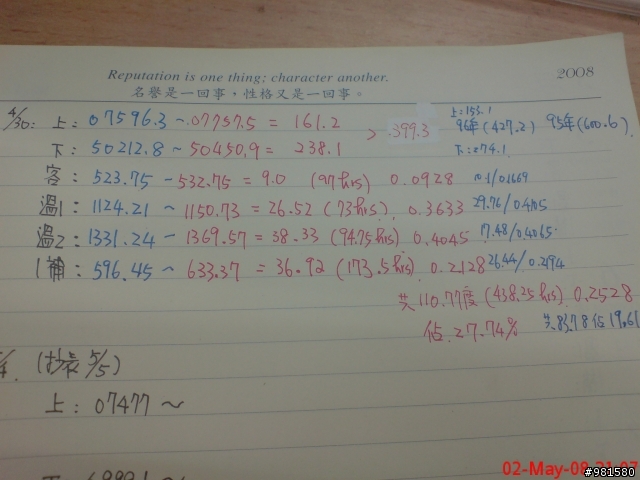 Reputation is one thing; character another. 2008
名譽是一回事，性格又是一回事。
4/30: 上: 07596.3 ~ 07757.5 = 161.2 > 399.3 上=153.1 96年(427.2) 95年(600.6)
下: 50212.8 ~ 50450.9 = 238.1 下:274.1
客: 523.75 ~ 532.75 = 9.0 (97hrs) 0.0928
溫1: 1124.21 ~ 1150.73 = 26.52 (73hrs) 0.3633 29.76/0.4105
溫2: 1331.24 ~ 1369.57 = 38.33 (94.75hrs) 0.4045 17.48/0.4065
1補: 596.45 ~ 633.37 = 36.92 (173.5hrs) 0.2128 26.44/0.2194
共 110.77度 (438.25hrs) 0.2528
佔 27.74% 共 83.78 佔 19.61
(抄表 5/5)
上: 07477 ~
02-May-08
#981580